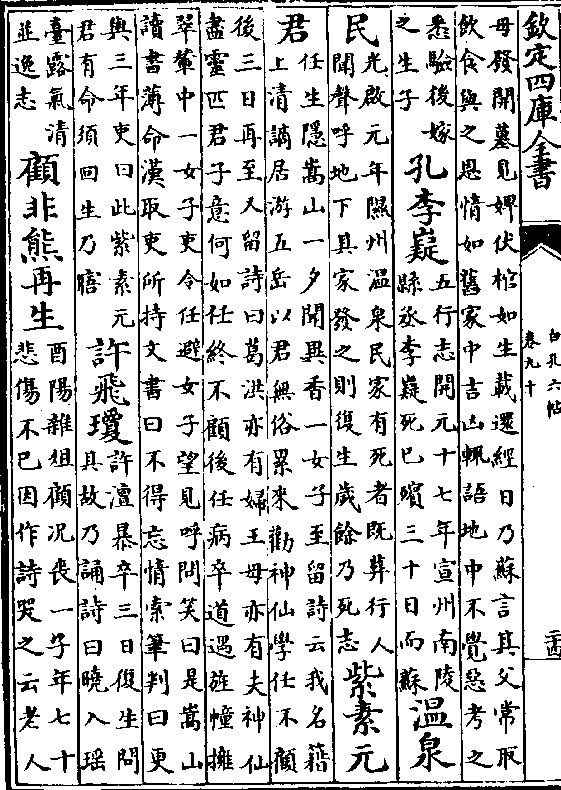 欽定四庫全書
白孔六帖
卷九十
母發開墓見婢伏棺如生載還經日乃蘇言其父常取
飲食與之恩情如舊家中吉凶輒語地中不覺惡考之
悉驗後嫁
之生子
孔李嶷
五行志開元十七年宣州南陵
縣丞李嶷死已殯三十日而蘇
溫泉
民
光啟元年隰州溫泉民家有死者既葬行人
聞聲呼地下其家發之則復生歲餘乃死志
紫素元
君
任生隱嵩山一夕聞異香一女子至留詩云我名籍
上清謫居游五岳以君無俗累來勸神仙學任不顧
後三日再至又留詩曰葛洪亦有婦王母亦有夫神仙
盡靈匹君子意何如任終不顧後任病卒道遇旌幢擁
翠輦中一女子吏令任避女子望見呼問笑曰是嵩山
讀書薄命漢取吏所持文書曰不得忘情索筆判曰更
與三年吏曰此紫素元
君有命須回生乃寤
許飛瓊
許澶暴卒三日復生問
其故乃誦詩曰曉入瑤
臺露氣清
並逸志
顧非熊再生
酉陽雜俎顧况喪一子年七十
悲傷不已因作詩哭之云老人